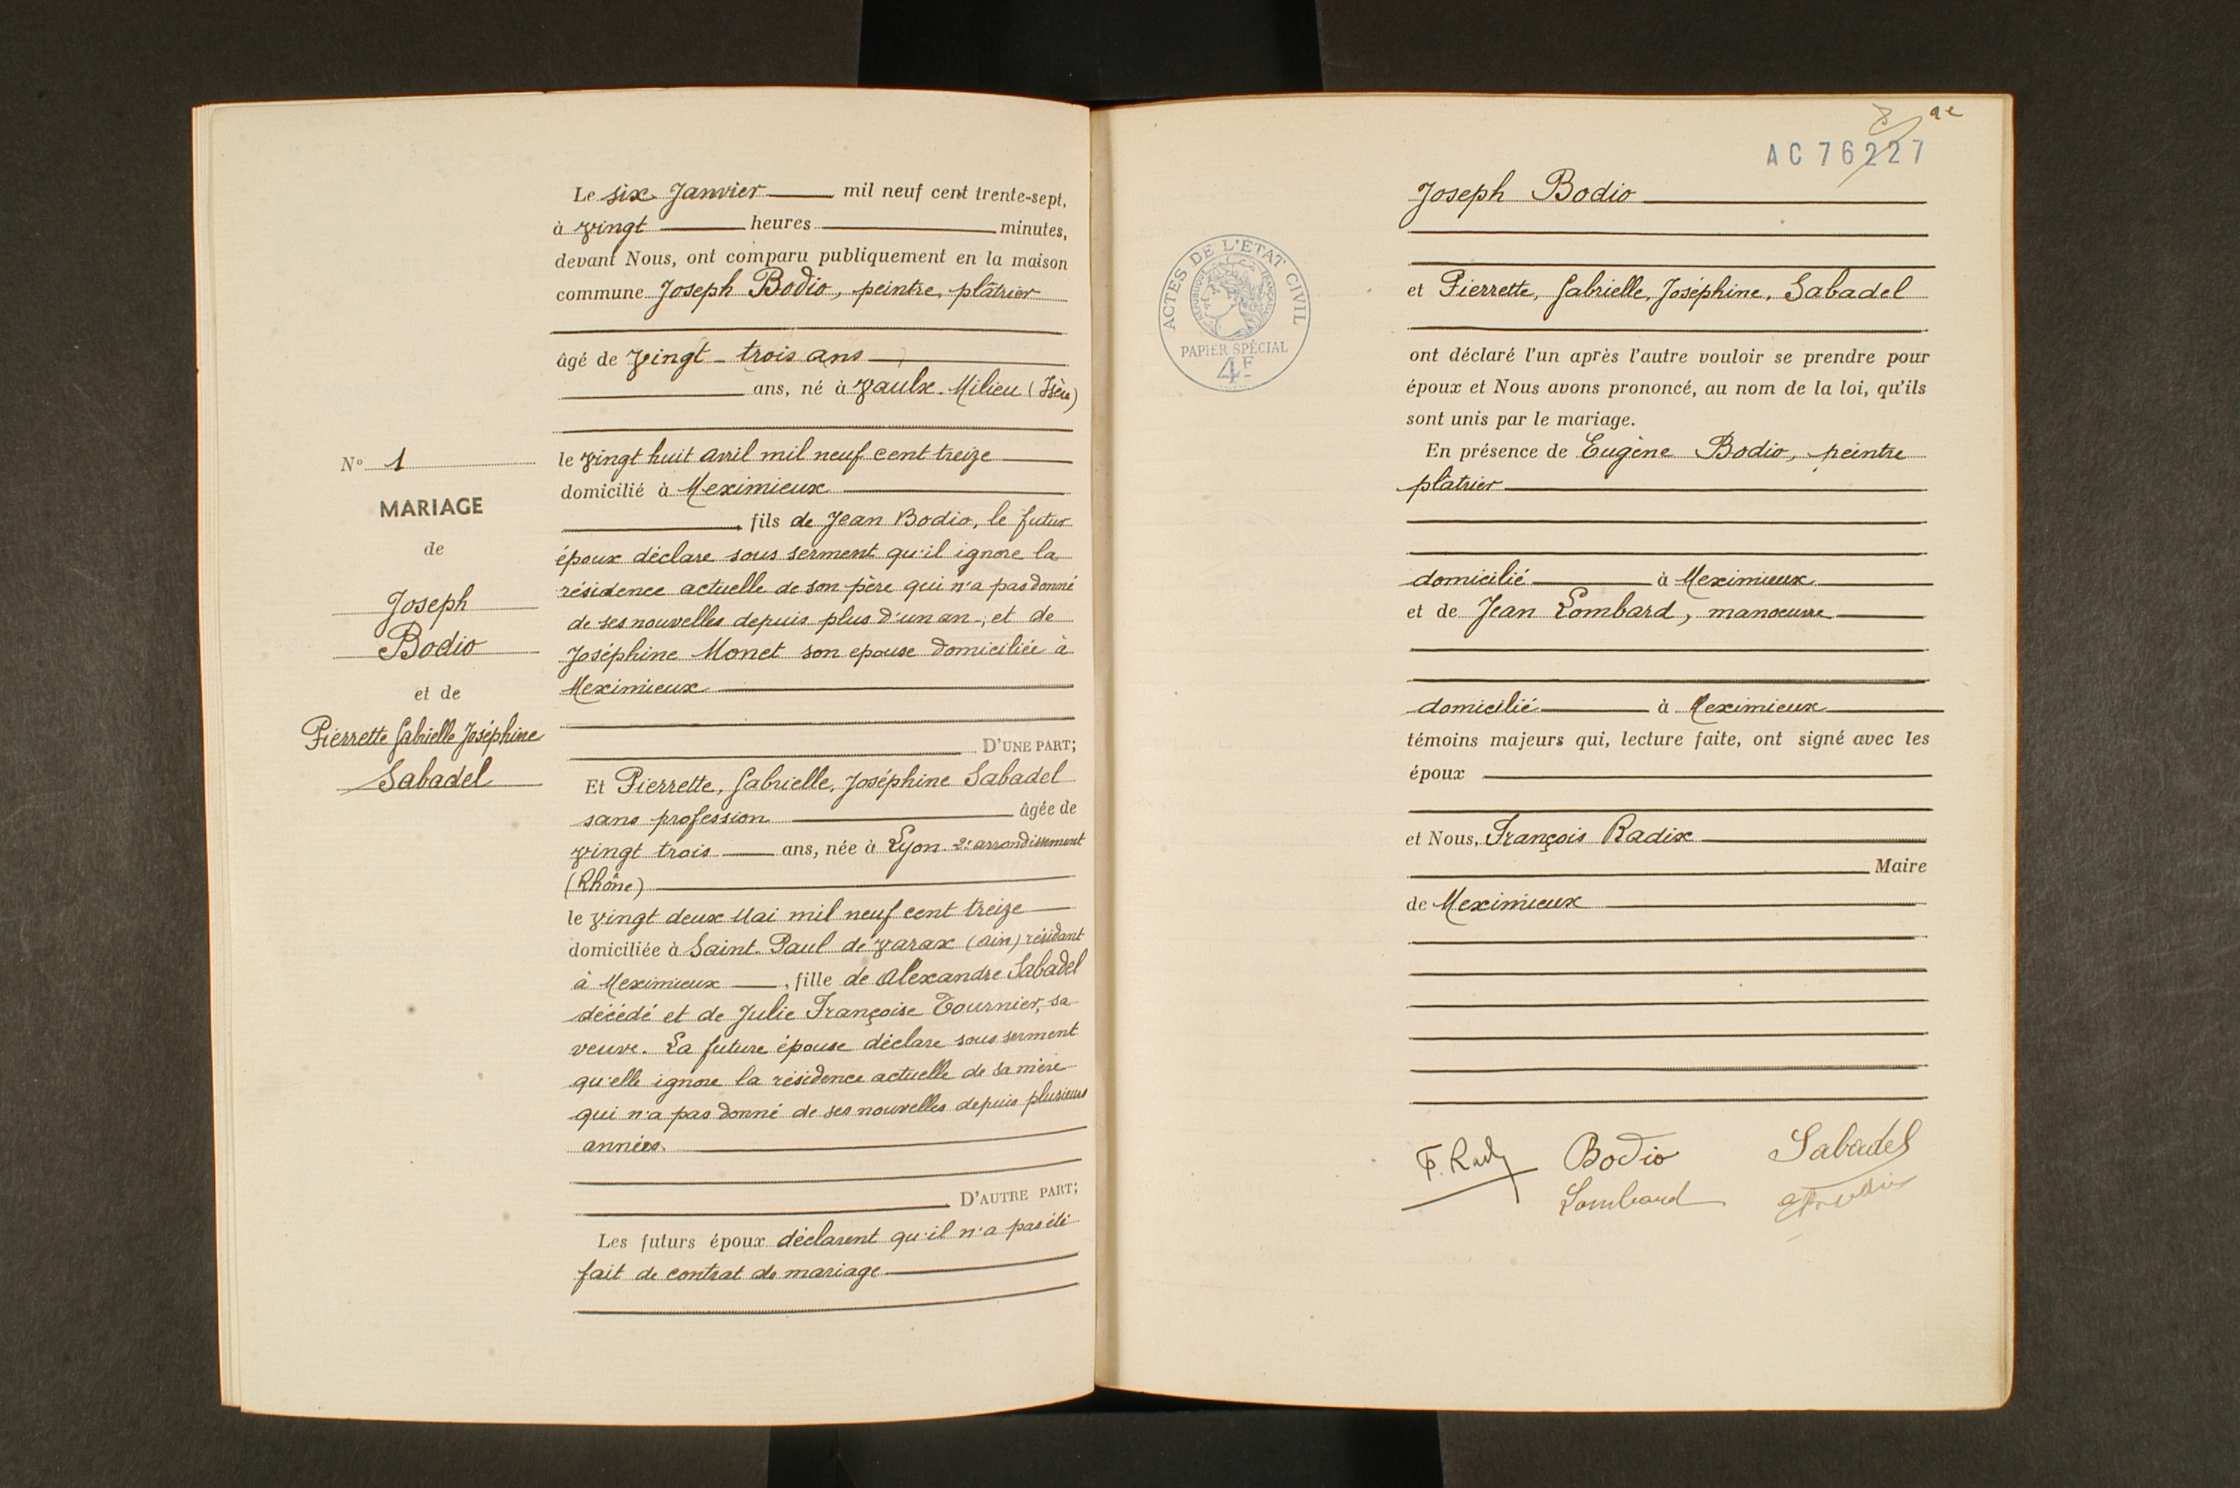 Le six Janvier mil neuf cent trente-sept,
à vingt heures minutes,
devant Nous, ont comparu publiquement en la maison
commune Joseph Bodio, peintre plâtrier
âgé de vingt-trois ans
ans, né à Vaulx-Milieu (Isère)
le vingt huit avril mil neuf cent treize
domicilié à Meximieux
, fils de Jean Bodio, le futur
époux déclare sous serment qu'il ignore la
résidence actuelle de son père qui n'a pas donné
de ses nouvelles depuis plus d'un an, et de
Joséphine Monet son epouse domiciliée à
Meximieux
D'UNE PART;
Et Pierrette, Gabrielle, Joséphine Sabadel
sans profession âgée de
vingt trois ans, née à Lyon 2e arrondissement
(Rhône)
le vingt deux Mai mil neuf cent treize
domiciliée à Saint-Paul de Varax (Ain) résidant
à Meximieux, fille de Alexandre Sabadel
décédé et de Julie Françoise Tournier, sa
veuve. La future épouse déclare sous serment
qu'elle ignore la résidence actuelle de sa mère
qui n'a pas donné de ses nouvelles depuis plusieurs
années.
D'AUTRE PART;
Les futurs époux déclarent qu'il n'a pas été
fait de contrat de mariage
N° 1
MARIAGE
de
Joseph
Bodio
et de
Pierrette Gabrielle Joséphine
Sabadel
AC 76227
ACTES DE L'ÉTAT CIVIL
RÉPUBLIQUE FRANÇAISE
PAPIER SPÉCIAL
4F
Joseph Bodio
et Pierrette, Gabrielle, Joséphine, Sabadel
ont déclaré l'un après l'autre vouloir se prendre pour
époux et Nous avons prononcé, au nom de la loi, qu'ils
sont unis par le mariage.
En présence de Eugène Bodio, peintre
plâtrier
domicilié à Meximieux
et de Jean Lombard, manoeuvre
domicilié à Meximieux
témoins majeurs qui, lecture faite, ont signé avec les
époux
et Nous, François Radix
Maire
de Meximieux
F. Radix Bodio Sabadel
Lombard